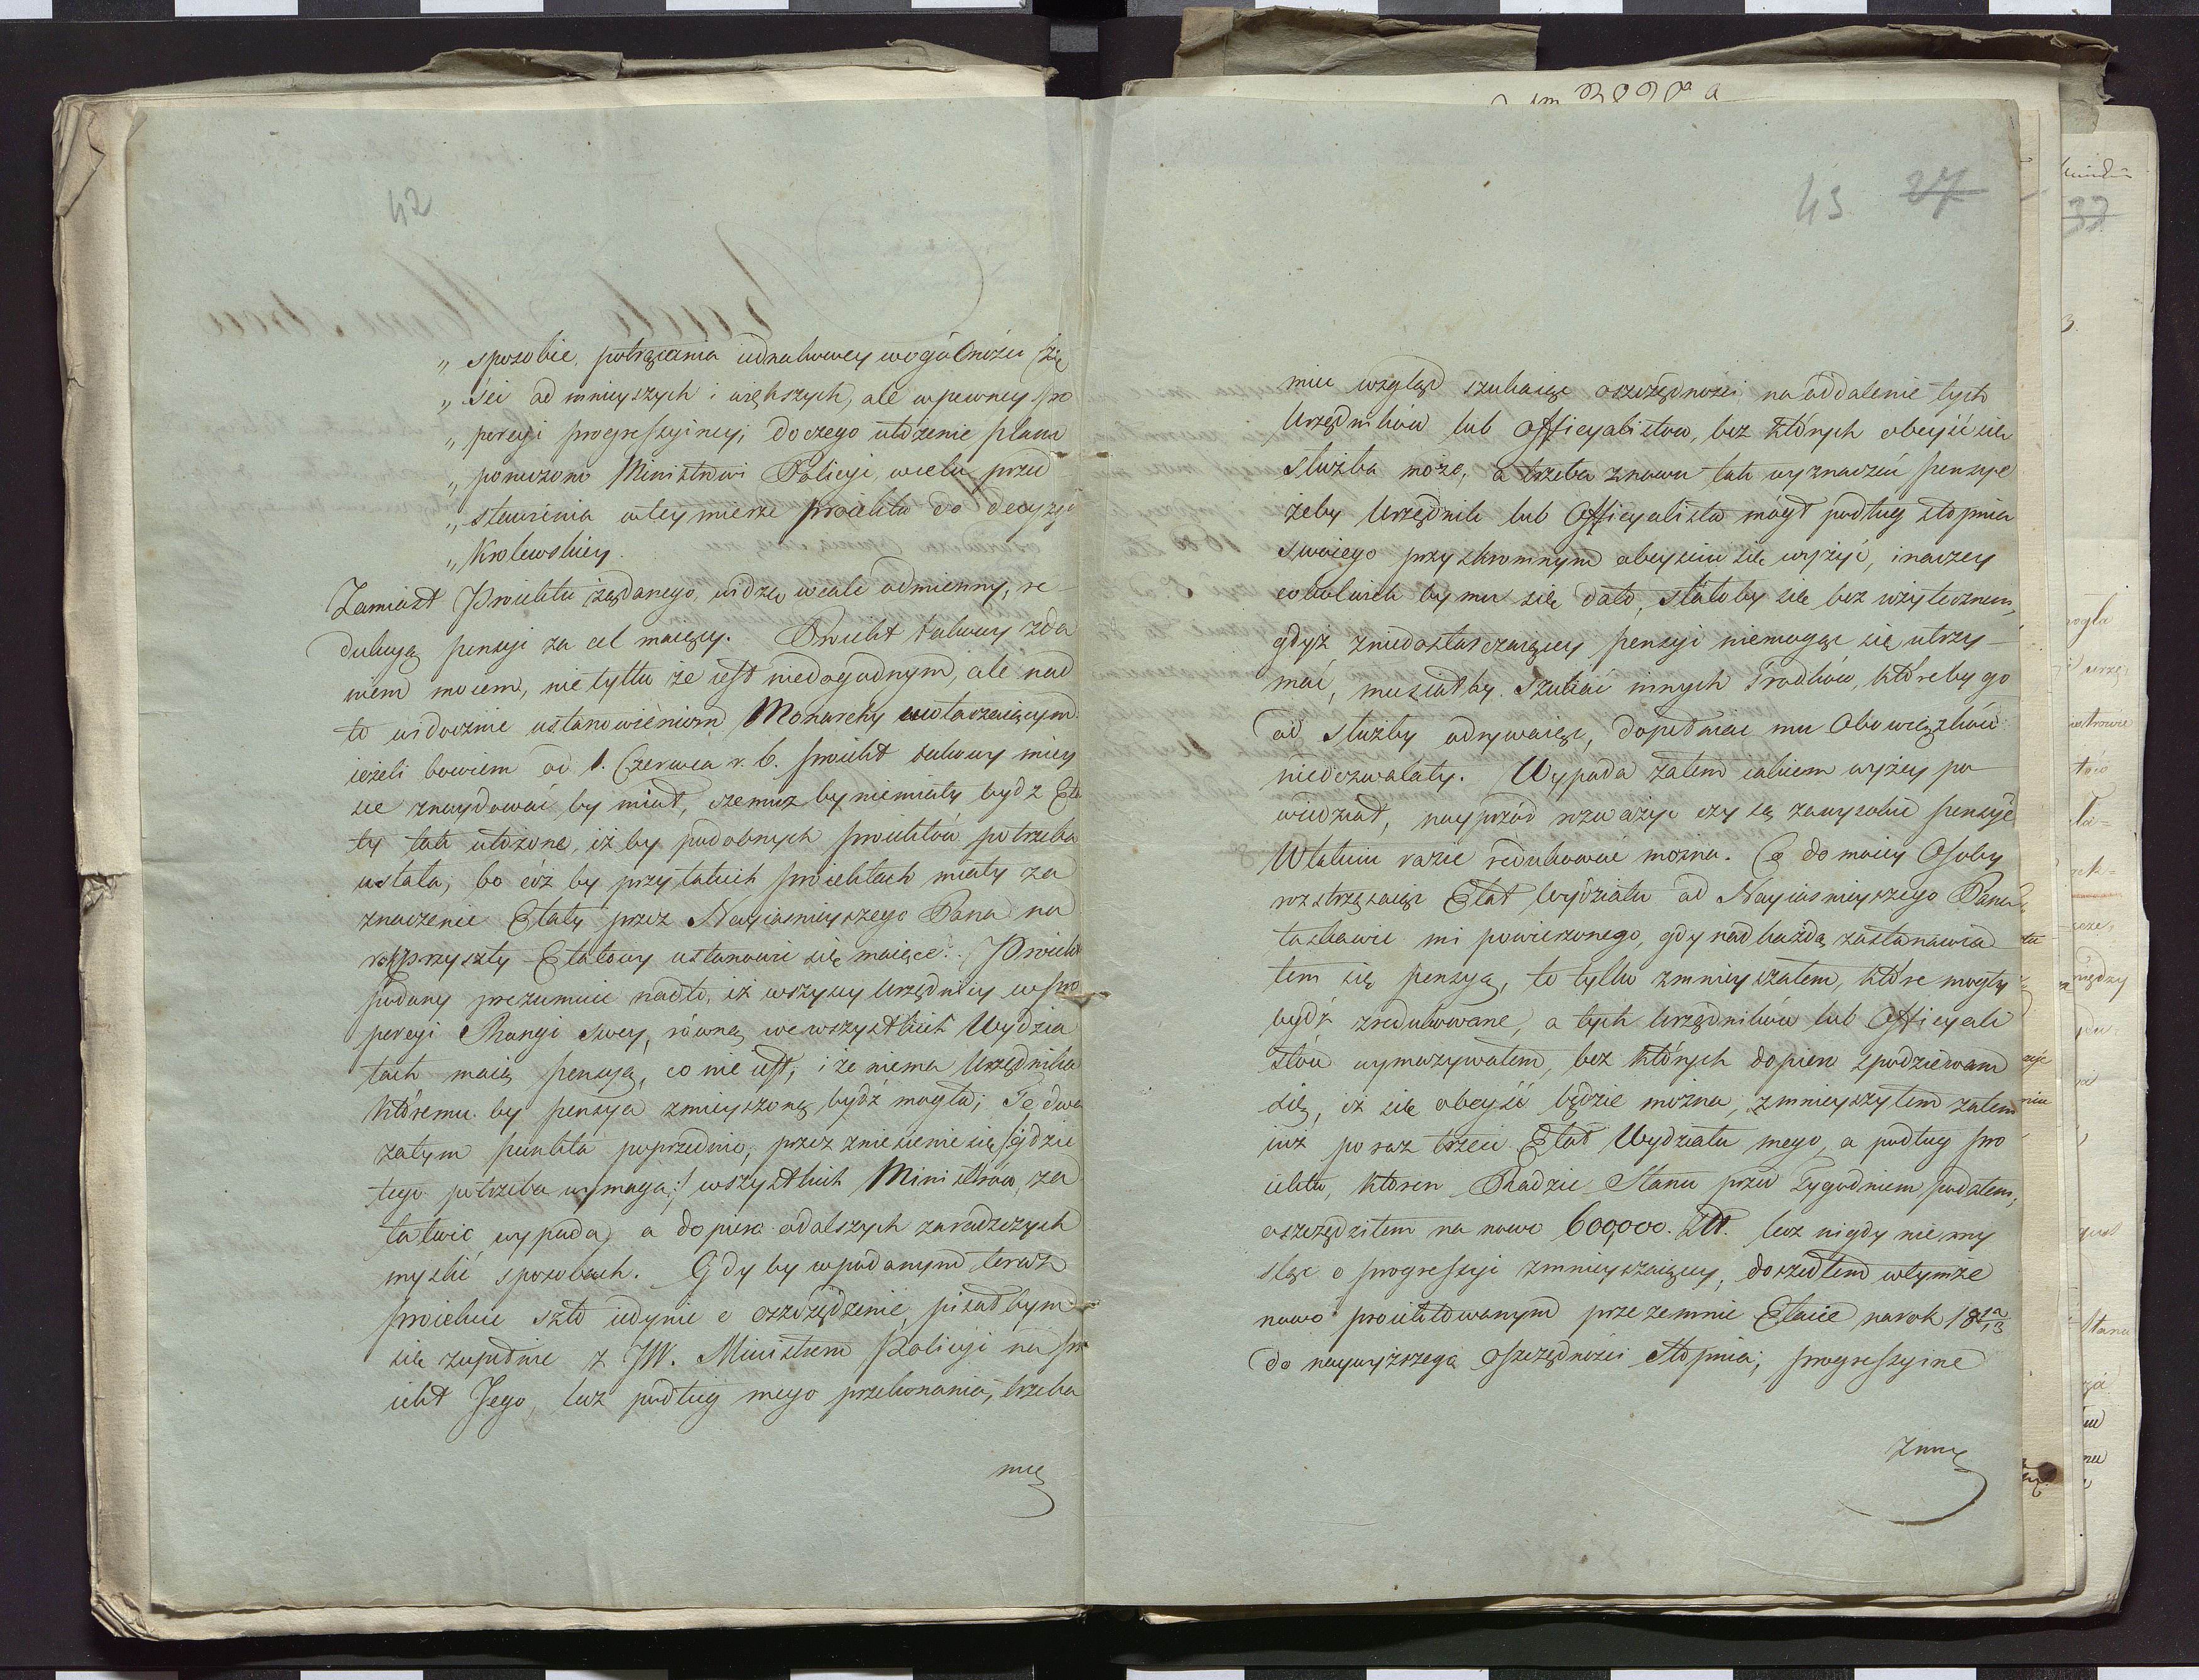 42
„ sposobie, potrącania iednakowey wogólności czę
„ ści od mnieyszych i większych, ale wpewney pro
„ porcyi progressyiney; doczego ułożenie planu
„ poruczono Ministrowi Policyi, wcelu przed
„ stawienia wtey mierze proiektu do decyzyi
„ Krolewskiey.
Zamiast Proiektu żądanego, widzę wcale odmienny, re
dukcyą pensyi za cel maiący. Proiekt takowy zda
niem moiem, nie tylko że iest niedogodnym, ale nad
to widocznie ustanowieniom Monarchy uwłaczaiącym
ieżeli bowiem od 1. Czerwca r. b. proiekt takowy miey
sce znaydować by miał, czemuż by niemiały bydz Eta
ty tak ułożone, iż by podobnych proiektów potrzeba
ustała; bo cóż by przy takich proiektach miały za
znaczenie Etaty przez Nayiasnieyszego Pana na
rok przyszły Etatowy ustanowić się maiące? Proiekt
podany prezumuie nadto, iż wszyscy Urzędnicy w pro
porcyi Rangi swey, równą we wszystkich Wydzia
łach maią pensyą, co nie iest; i że niema Urzędnika
któremu by pensya zmnieyszoną bydź mogła; Te dwa
zatym punkta poprzednio, przez zniesienie się /:gdzie
tego potrzeba wymaga:/ wszystkich Ministrów, za
łatwić wypada, a dopiero odalszych zaradczych
myślić sposobach. Gdyby wpodanym teraz
proiekcie szło iedynie o oszczędzenie, pisałbym
się zupełnie z JW. Ministrem Policyi na pro
iekt Jego, lecz podług mego przekonania, trzeba
mieć
43 27
mieć wzgląd szukaiąc oszczędności na oddalenie tych
Urzędników lub Officyalistow, bez których obeyść się
służba może, a trzeba znowu tak wyznaczać pensye
żeby Urzędnik lub Officyalista mógł podług stopnia
swoiego przy skromnym obeyściu się wyżyć, inaczey
cokolwiek by mu się dało, stałoby się bez użytecznem,
gdyż zniedostarczaiącey pensyi niemogąc się utrzy-
mać, musiałby szukać innych środków, któreby go
od służby odrywaiąc, dopełniać mu Obowiązków
niedozwalały. Wypada zatem iakiem wyżey po
wiedział, nayprzód rozważyć czy są zawysokie pensye
Wtakim razie redukować można. Co do moiey Osoby
roztrząsaiąc Etat Wydziału od Nayiasnieyszego Pana
łaskawie mi powierzonego, gdy nad każdą zastanawia
łem się pensyą, te tylko zmnieyszałem, które mogły
bydź zredukowane, a tych Urzędników lub Officyali
stów wymazywałem, bez których dopiero spodziewam
się, iż się obeyść będzie można; zmnieyszyłem zatem
iuż po raz trzeci Etat Wydziału mego, a podług pro
iektu, ktoren Radzie Stanu przed Tygodniem podałem,
oszczędziłem na nowo 600,000. Złł. lecz nigdy nie my
sląc o progressyi zmnieyszaiącey, doszedłem wtymże
nowo proiektowanym przezemnie Etacie na rok 1812/13
do naywyższego oszczędności stopnia; progressyine
Zmnie